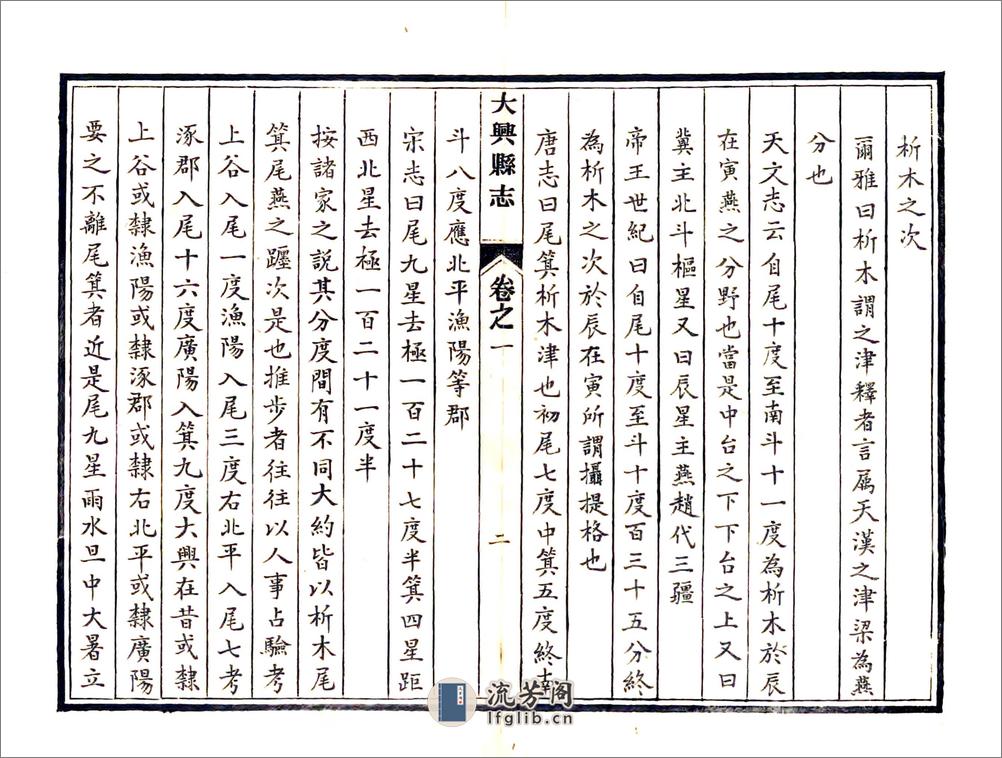 析木之次
爾雅曰析木謂之津釋者言属天漢之津梁為燕
分也
天文志云自尾十度至南斗十一度為析木於辰
在寅燕之分野也當是中台之下下台之上又曰
冀主北斗樞星又曰辰星主燕趙代三疆
帝王世紀曰自尾十度至斗十度百三十五分終
為析木之次於辰在寅所謂攝提格也
唐志曰尾箕析木津也初尾七度中箕五度終
大興縣志
卷之一
二
斗八度應北平漁陽等郡
宋志曰尾九星去極一百二十七度半箕四星距
西北星去極一百二十一度半
按諸家之說其分度間有不同大約皆以析木尾
箕尾燕之躔次是也推步者往往以人事占驗考
上谷入尾一度漁陽入尾三度右北平入尾七考
涿郡入尾十六度廣陽入箕九度大興在昔或隸
上谷或隸漁陽或隸涿郡或隸右北平或隸廣陽
要之不離尾箕者近是尾九星雨水旦中大暑立
流芳阁
lfglib.cn